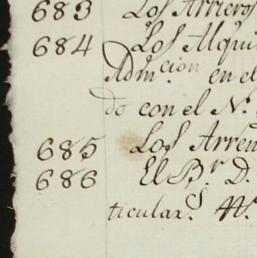 683 Los Arrieros
684 Los Alqui
Adm.cion en el
do con el N.
685 Los Arren
686 El B.r D.
ticular.s